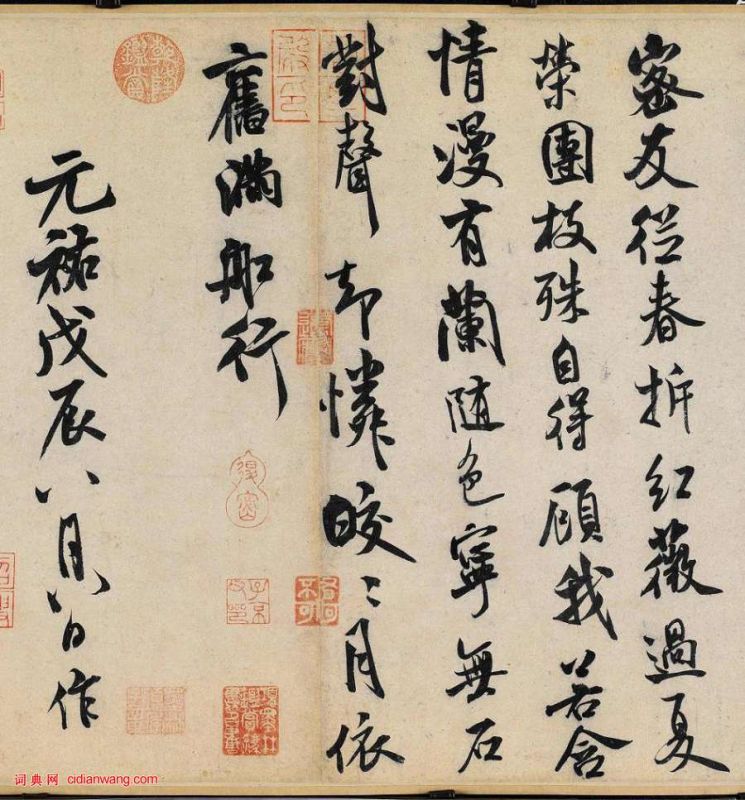 密友從春拆紅薇過夏
榮團枝殊自得顧我若含
情漫有蘭随色寧無石
對聲却憐皎〻月依
舊滿船行
元祐戊辰八月八日作
词典网 cidianwang.com